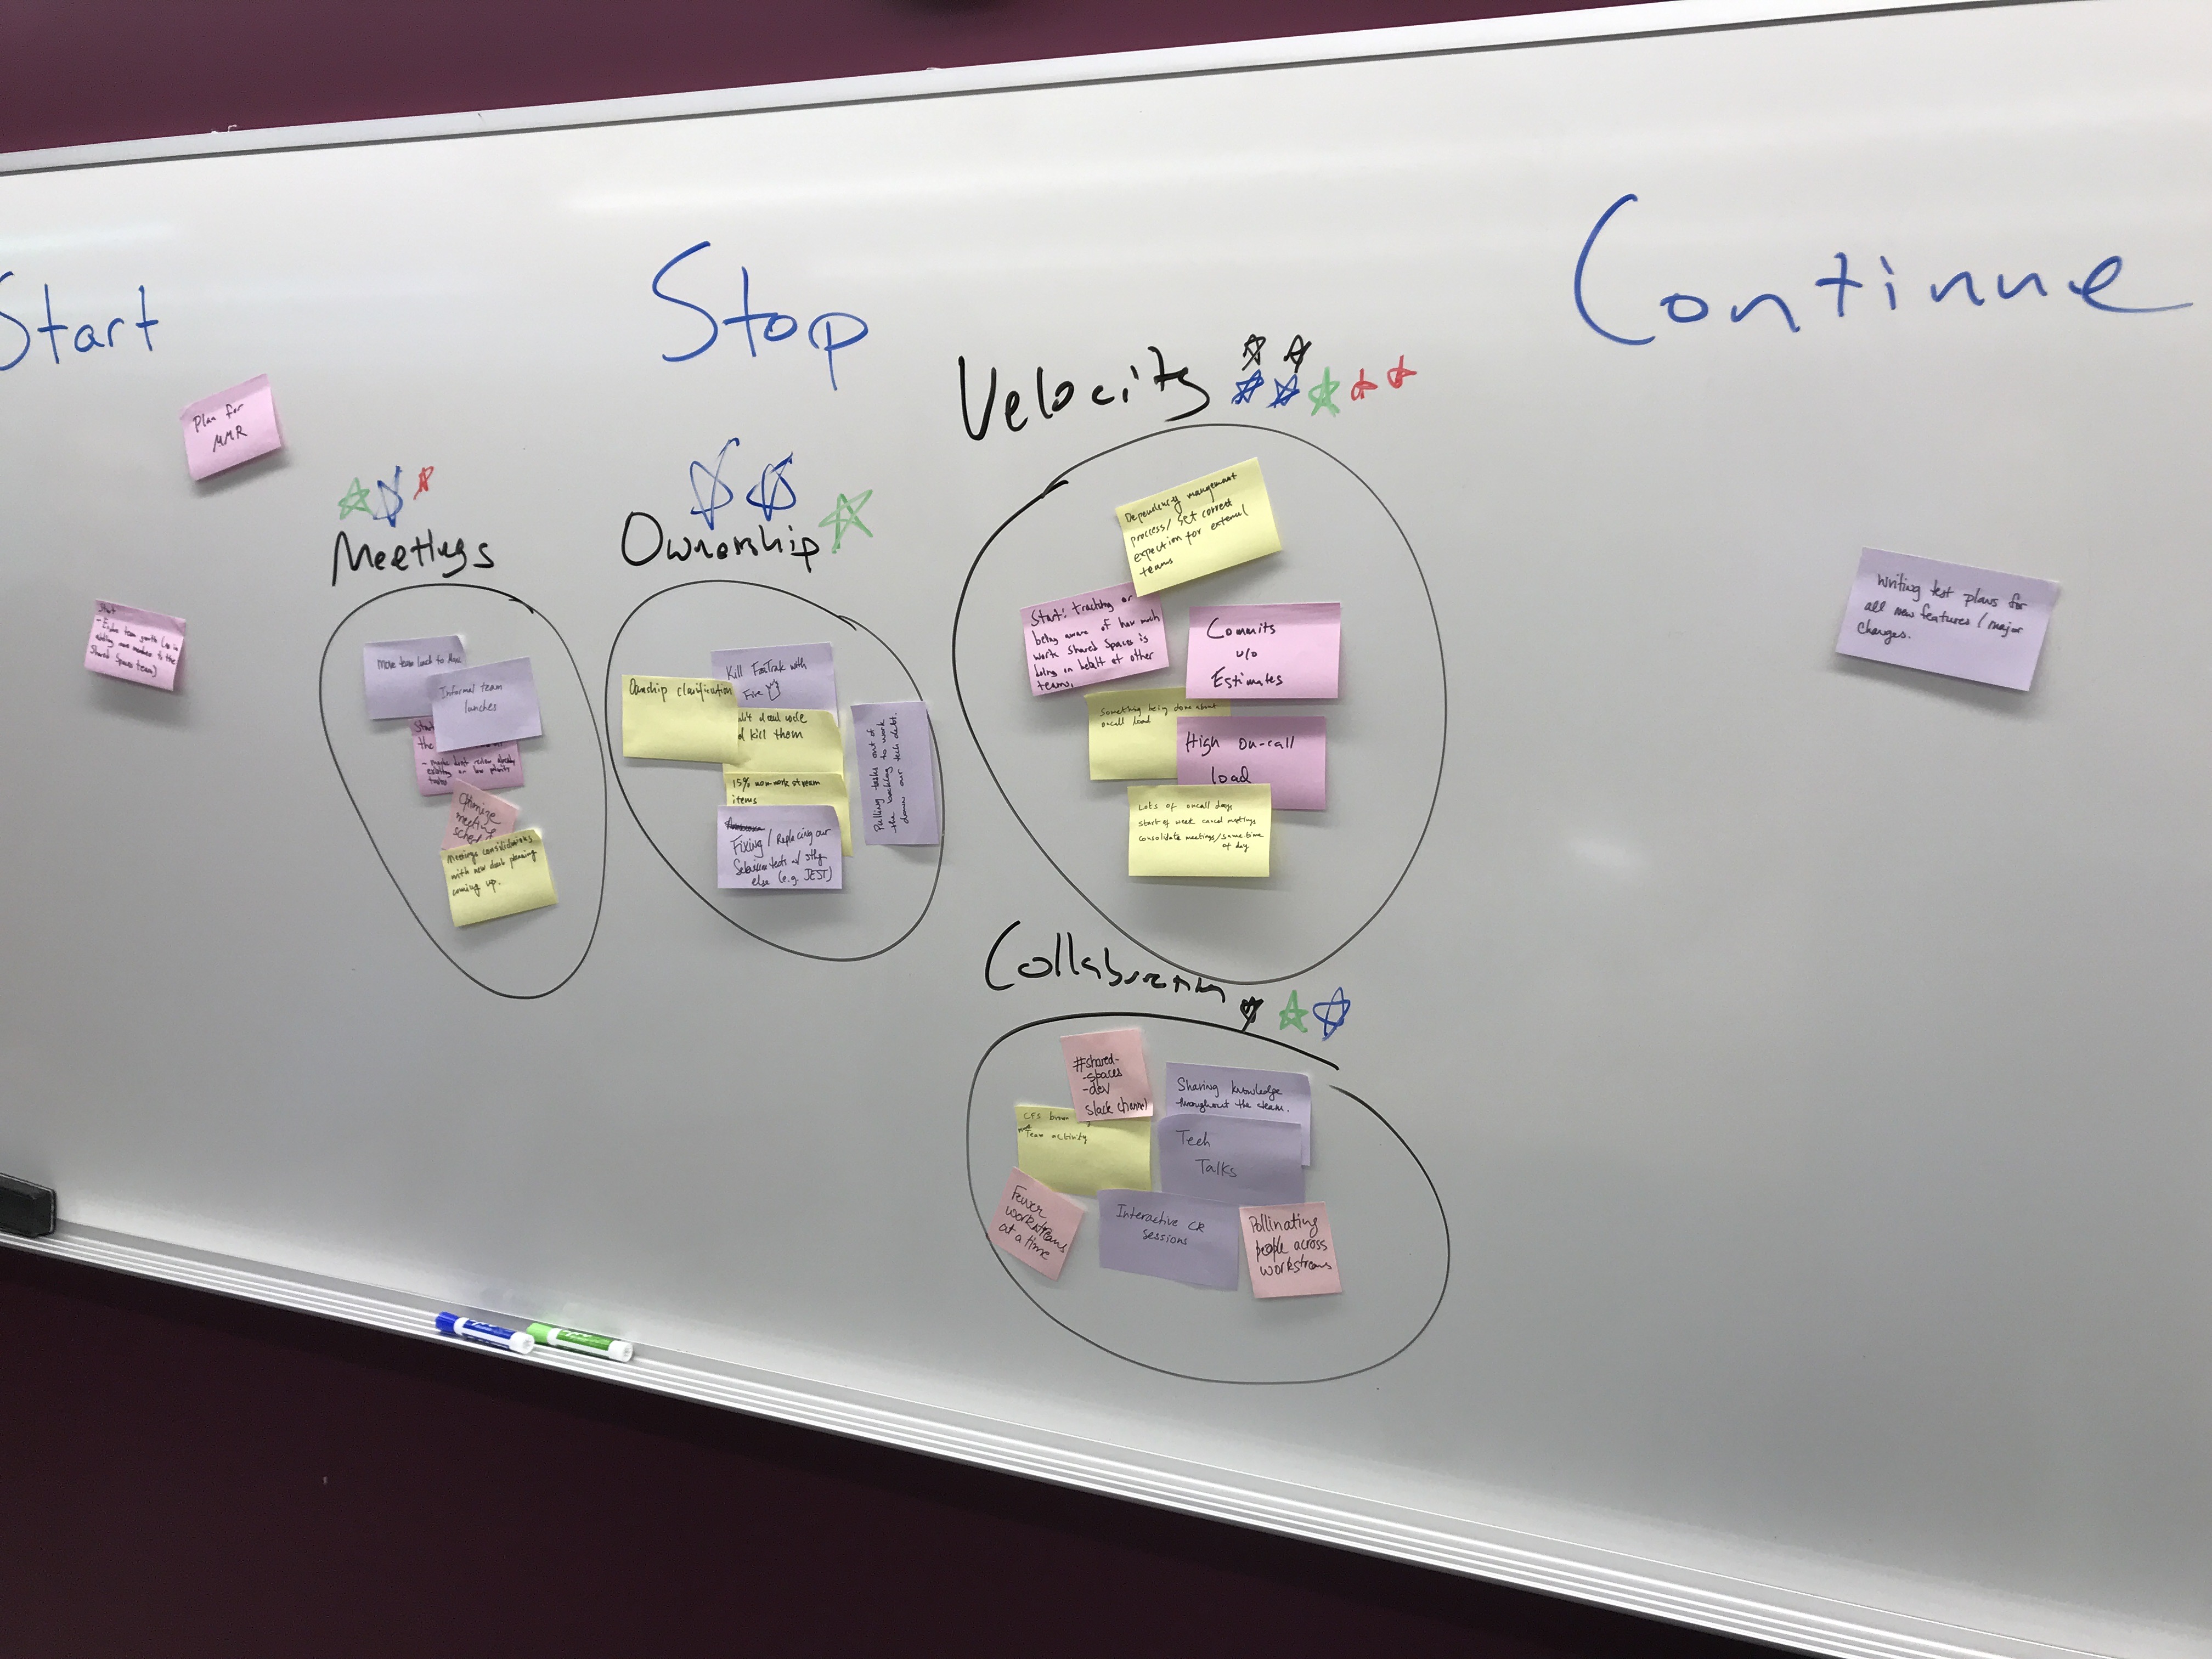 Start
Stop
Continue
Plan for
MMR
Meetings
Ownership
Velocity
Collaboration
Start
team growth
more members to the
Shared Spaces team)
Move team back to
Informal team
lunches
Start
the
existing on low priority
tasks
Optimize
meeting
Meetings considerations
with new desk planning
coming up.
Kill with
Fire
Ownership clarification
dead code
kill them
15% non-workstream
items
Fixing / Replacing our
tests w/ sthg
else (e.g. JEST)
Pulling tasks out of
the backlog to work
down our tech debt.
Dependency management
process/ set correct
expection for external
teams
Start: tracking or
being aware of how much
work Shared Spaces is
doing on behalf of other
teams.
Commits
w/o
Estimates
Something being done about
oncall load
High on-call
load
Lots of oncall days
start of week cancel meetings
consolidate meetings/same time
of day
#shared-
-spaces
-dev
slack channel
Sharing knowledge
throughout the team.
CFS
Team activity
Tech
Talks
Fewer
workstreams
at a time
Interactive CR
sessions
Pollinating
people across
workstreams
Writing test plans for
all new features / major
changes.